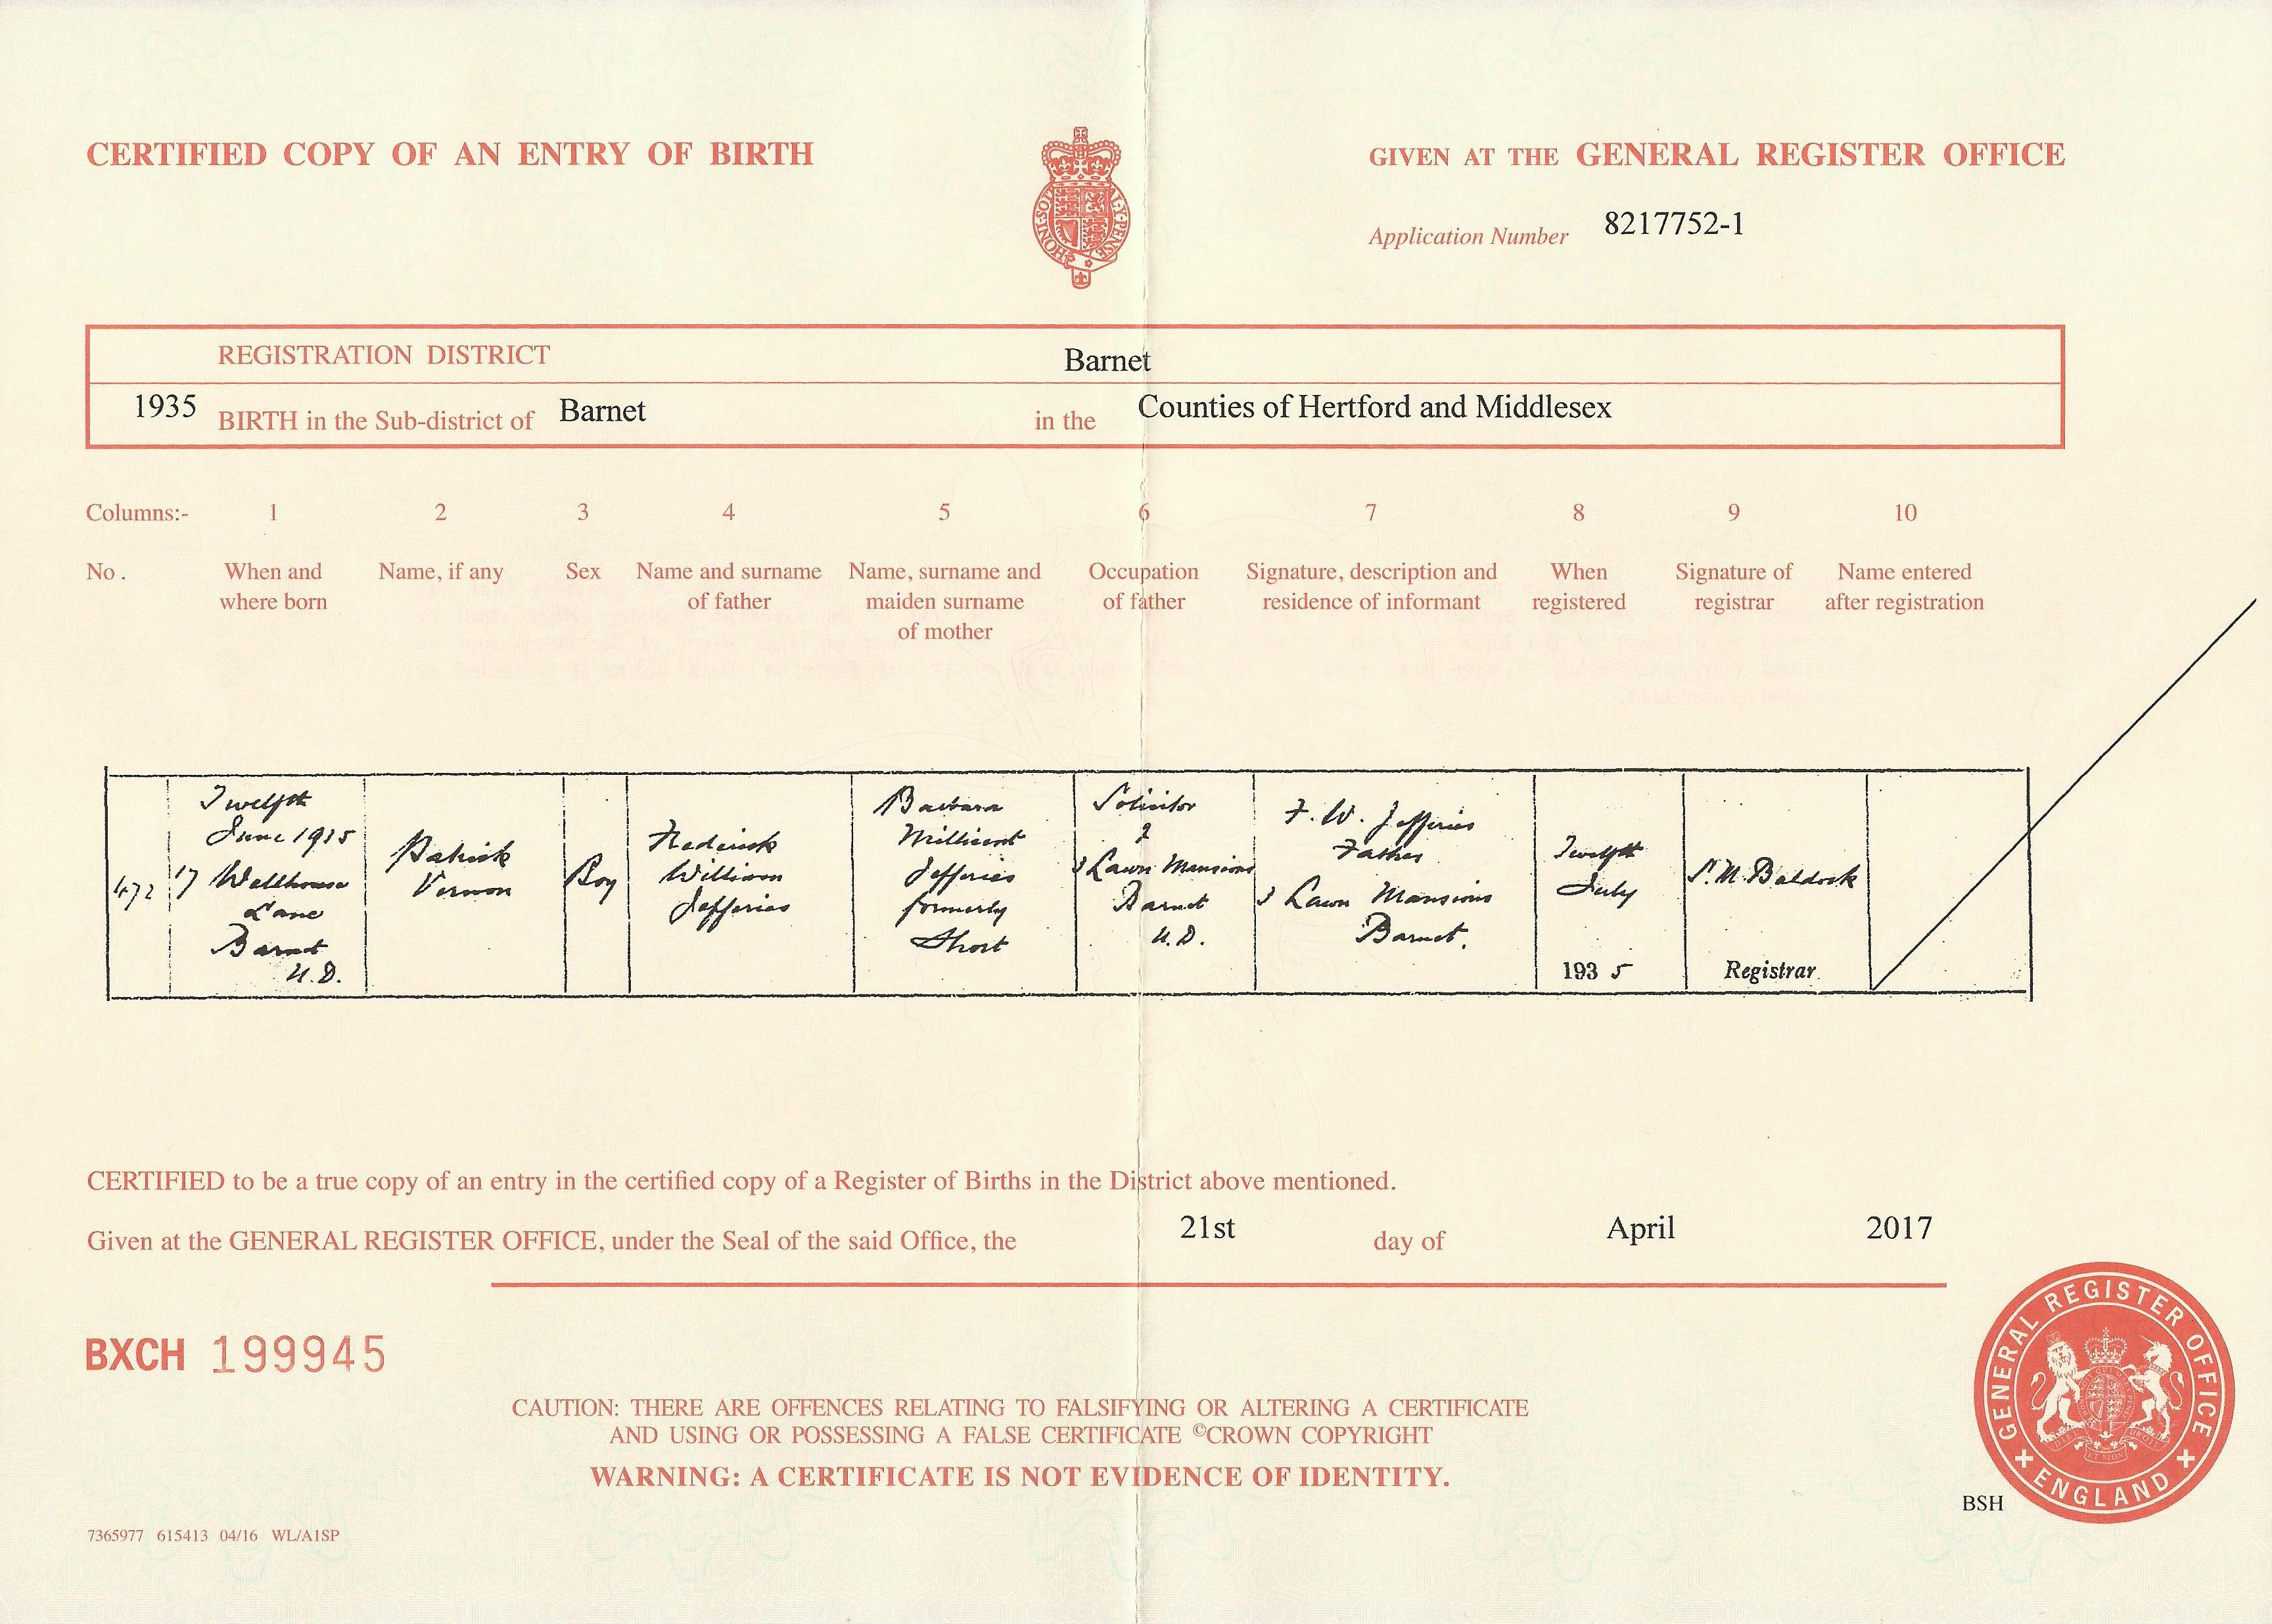 CERTIFIED COPY OF AN ENTRY OF BIRTH
GIVEN AT THE GENERAL REGISTER OFFICE
Application Number 8217752-1
REGISTRATION DISTRICT Barnet
1935 BIRTH in the Sub-district of Barnet in the Counties of Hertford and Middlesex
Columns:- 1 2 3 4 5 6 7 8 9 10
No. When and where born
Name, if any
Sex
Name and surname of father
Name, surname and maiden surname of mother
Occupation of father
Signature, description and residence of informant
When registered
Signature of registrar
Name entered after registration
472
Twelfth
June 1935
17 Wellhouse
Lane
Barnet
U.D.
Patrick
Vernon
Boy
Frederick
William
Jefferies
Barbara
Millicent
Jefferies
formerly
Short
Solicitor
of
3 Lawn Mansions
Barnet
U.D.
F. W. Jefferies
Father
3 Lawn Mansions
Barnet.
Twelfth
July
1935
Baldock
Registrar
CERTIFIED to be a true copy of an entry in the certified copy of a Register of Births in the District above mentioned.
Given at the GENERAL REGISTER OFFICE, under the Seal of the said Office, the 21st day of April 2017
BXCH 199945
CAUTION: THERE ARE OFFENCES RELATING TO FALSIFYING OR ALTERING A CERTIFICATE
AND USING OR POSSESSING A FALSE CERTIFICATE ©CROWN COPYRIGHT
WARNING: A CERTIFICATE IS NOT EVIDENCE OF IDENTITY.
GENERAL REGISTER OFFICE
ENGLAND
BSH
7365977 615413 04/16 WL/A1SP